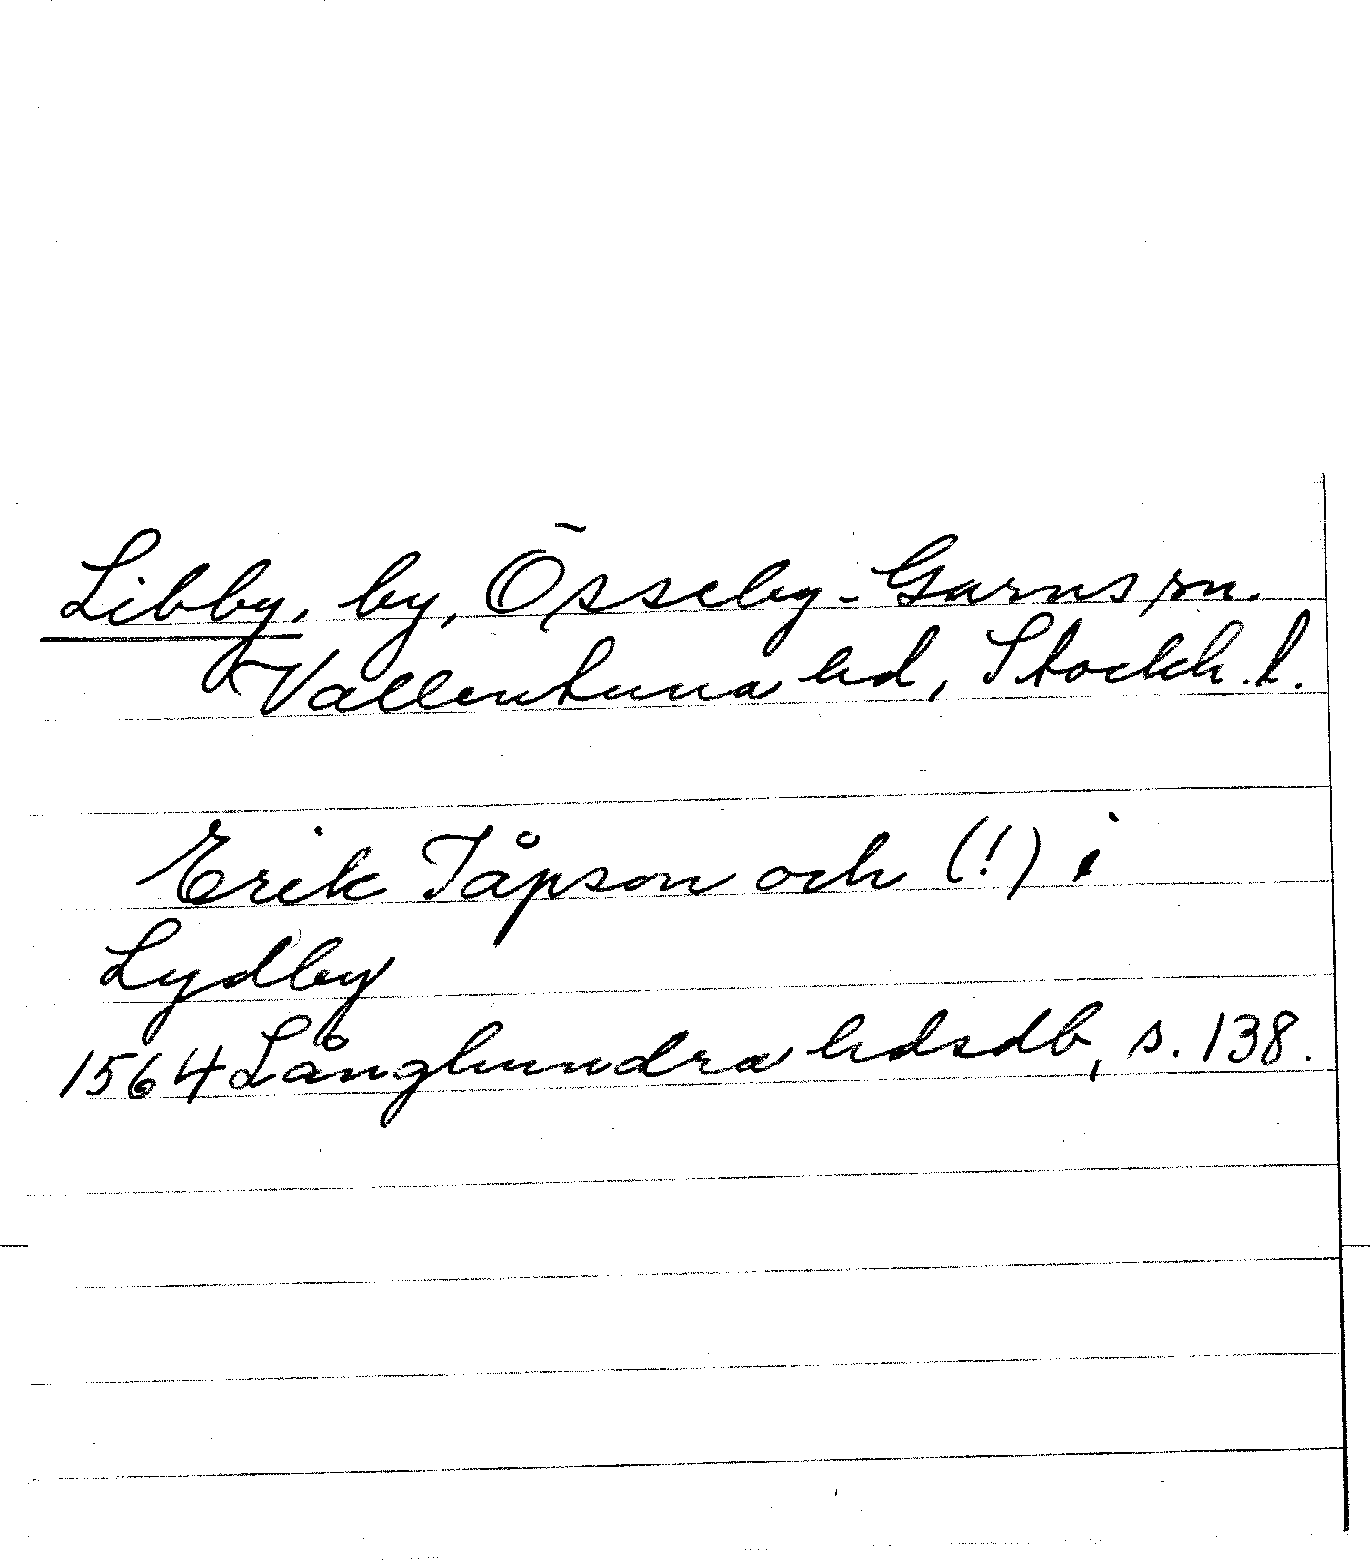 Libby, by, Össeby-Garns sn.
Vallentuna hd, Stockh. l.
Erik Jåpson och (!) i
Lydby
1564 Långhundra hdsdb, s. 138.